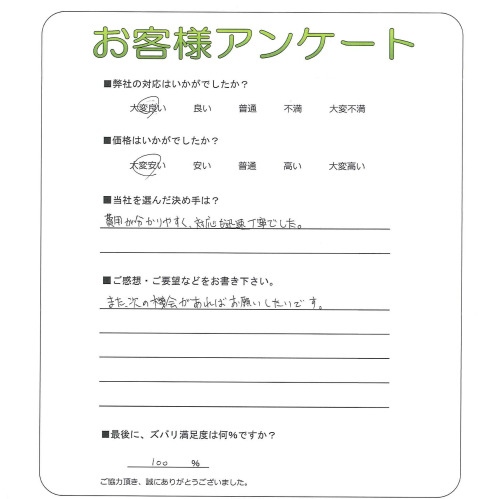 お客様アンケート
■弊社の対応はいかがでしたか？
大変良い 良い 普通 不満 大変不満
■価格はいかがでしたか？
大変安い 安い 普通 高い 大変高い
■当社を選んだ決め手は？
費用が分かりやすく、対応も迅速丁寧でした。
■ご感想・ご要望などをお書き下さい。
また、次の機会があればお願いしたいです。
■最後に、ズバリ満足度は何%ですか？
100 %
ご協力頂き、誠にありがとうございました。